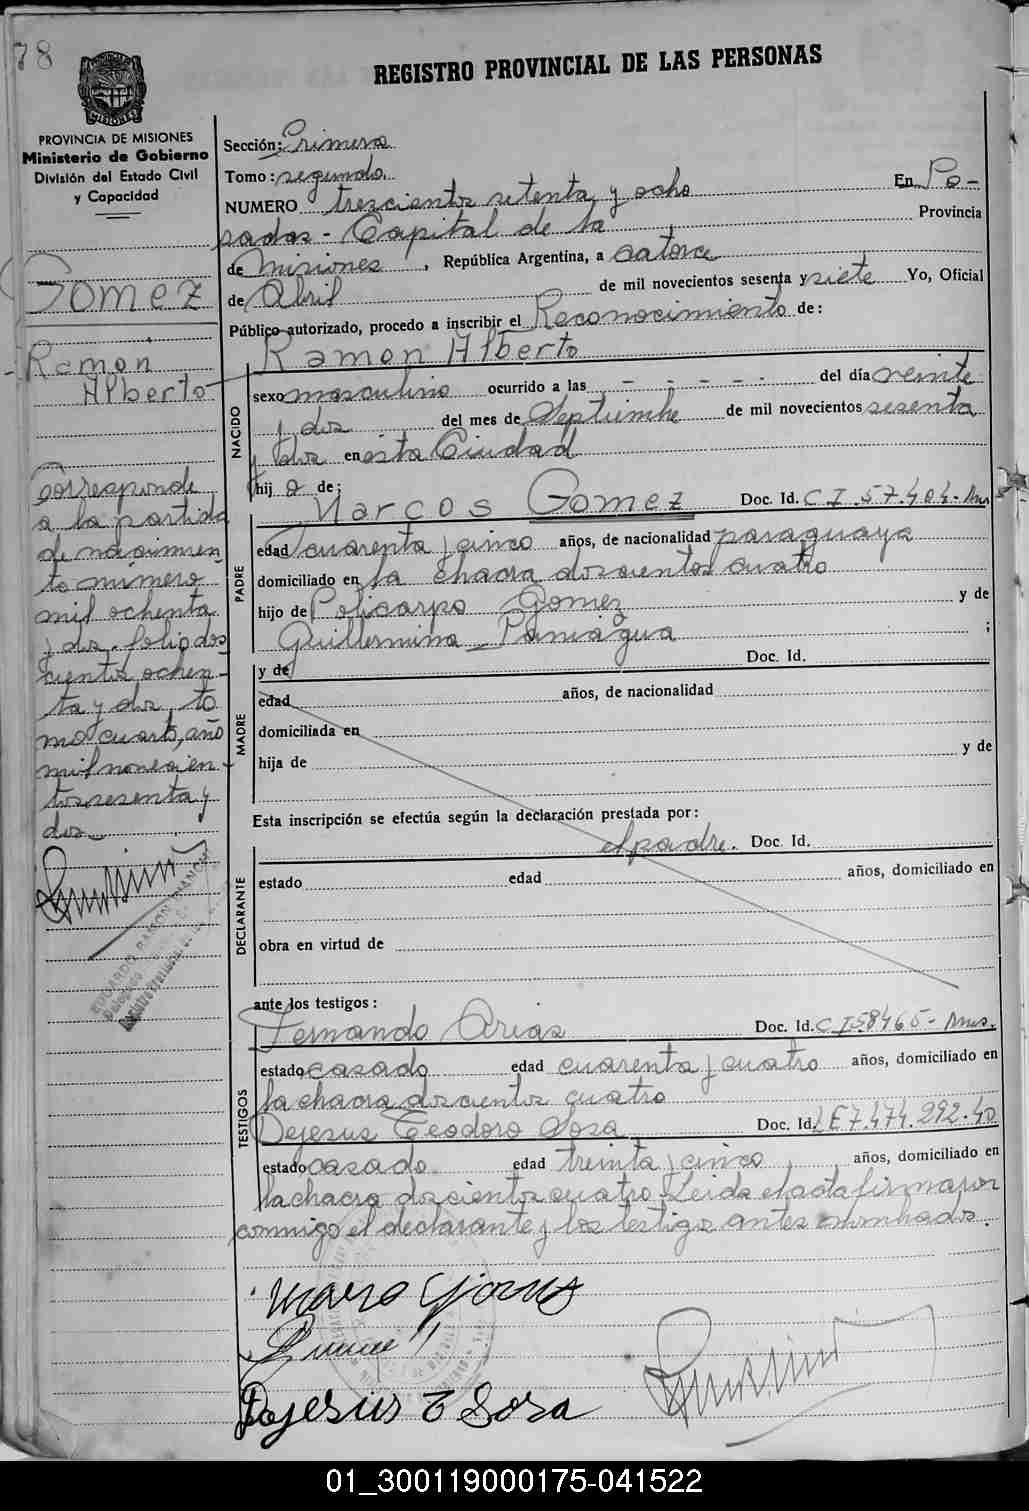 78
REGISTRO PROVINCIAL DE LAS PERSONAS
MISIONES
PROVINCIA DE MISIONES
Ministerio de Gobierno
División del Estado Civil
y Capacidad
Gomez
Ramon
Alberto
Corresponde
a la partida
de nacimien
to número
mil ochenta
y dos. folio dos
cientos ochen-
ta y dos, to
mo cuarto, año
mil novecien-
tos sesenta y
dos
EDUARDO RAMON BIANCHI
Delegado
Sección: Primera
Tomo: segundo
NUMERO trescientos setenta y ocho En Po-
sadas - Capital de la Provincia
de Misiones, República Argentina, a catorce
de Abril de mil novecientos sesenta y siete Yo, Oficial
Público autorizado, procedo a inscribir el Reconocimiento de:
Ramon Alberto
NACIDO
sexo masculino ocurrido a las - - - - del día veinte
y dos del mes de Septiembre de mil novecientos sesenta
y dos en esta Ciudad
hijo de:
Marcos Gomez Doc. Id. C I. 57.404-Mns
PADRE
edad cuarenta y cinco años, de nacionalidad paraguaya
domiciliado en la chacra doscientos cuatro
hijo de Policarpo Gomez y de
Guillermina Paniagua ;
y de Doc. Id.
MADRE
edad años, de nacionalidad
domiciliada en
hija de y de
Esta inscripción se efectúa según la declaración prestada por:
el padre. Doc. Id.
DECLARANTE
estado edad años, domiciliado en
obra en virtud de
ante los testigos:
Fernando Arias Doc. Id. C I 58465- Mns.
TESTIGOS
estado casado edad cuarenta y cuatro años, domiciliado en
la chacra doscientos cuatro
Dejesus Teodoro Sosa Doc. Id. LE 7.474.292.40
estado casado edad treinta y cinco años, domiciliado en
la chacra doscientos cuatro. Leida el acta firmaron
conmigo el declarante y los testigos antes nombrados.
Dejesus T Sosa
01_300119000175-041522